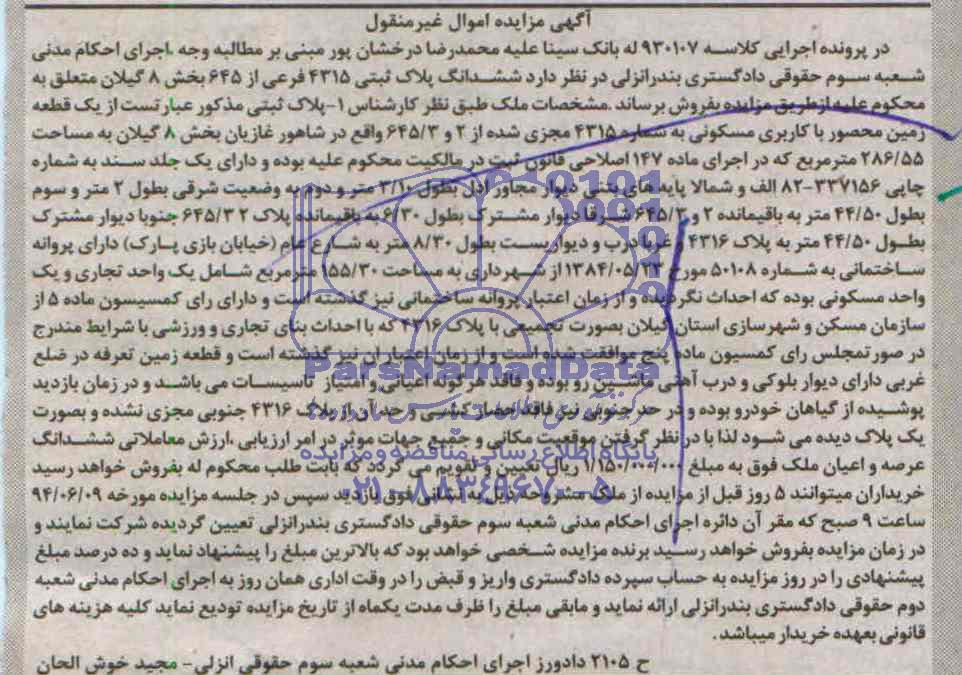 آگهی مزایده اموال غیرمنقول
در پرونده اجرایی کلاسه ۹۳۰۱۰۷ له بانک سینا علیه محمدرضا درخشان پور مبنی بر مطالبه وجه ،اجرای احکام مدنی
شعبه سوم حقوقی دادگستری بندرانزلی در نظر دارد ششدانگ پلاک ثبتی ۴۳۱۵ فرعی از ۶۴۵ بخش ۸ گیلان متعلق به
محکوم علیه ازطریق مزایده بفروش برساند .مشخصات ملک طبق نظر کارشناس ۱-پلاک ثبتی مذکور عبارتست از یک قطعه
زمین محصور با کاربری مسکونی به شماره ۴۳۱۵ مجزی شده از ۲ و ۶۴۵/۳ واقع در شاهور غازیان بخش ۸ گیلان به مساحت
۲۸۶/۵۵ مترمربع که در اجرای ماده ۱۴۷ اصلاحی قانون ثبت در مالکیت محکوم علیه بوده و دارای یک جلد سند به شماره
چاپی ۳۳۷۱۵۶-۸۲ الف و شمالا پایه های بتنی دیوار مجاور اول بطول ۳/۱۰ متر و دوم به وضعیت شرقی بطول ۲ متر و سوم
بطول ۴۴/۵۰ متر به باقیمانده ۲ و ۶۴۵/۳ شرقا دیوار مشترک بطول ۶/۳۰ به باقیمانده پلاک ۲ ۶۴۵/۳ جنوبا دیوار مشترک
بطول ۴۴/۵۰ متر به پلاک ۴۳۱۶ و غربا درب و دیواریست بطول ۸/۳۰ متر به شارع عام (خیابان بازی پارک) دارای پروانه
ساختمانی به شماره ۵۰۱۰۸ مورخ ۱۳۸۴/۰۵/۲۳ از شهرداری به مساحت ۱۵۵/۳۰ مترمربع شامل یک واحد تجاری و یک
واحد مسکونی بوده که احداث نگردیده و از زمان اعتبار پروانه ساختمانی نیز گذشته است و دارای رای کمسیسون ماده ۵ از
سازمان مسکن و شهرسازی استان گیلان بصورت تجمیعی با پلاک ۴۳۱۶ که با احداث بنای تجاری و ورزشی با شرایط مندرج
در صورتمجلس رای کمسیون ماده پنج موافقت شده است و از زمان اعتبار ان نیز گذشته است و قطعه زمین تعرفه در ضلع
غربی دارای دیوار بلوکی و درب آهنی ماشین رو بوده و فاقد هر گونه اعیانی و امتیاز تاسیسات می باشد و در زمان بازدید
پوشیده از گیاهان خودرو بوده و در حد جنوبی نیز فاقد حصار کشی و حد آن از پلاک ۴۳۱۶ جنوبی مجزی نشده و بصورت
یک پلاک دیده می شود لذا با در نظر گرفتن موقعیت مکانی و جمیع جهات موثر در امر ارزیابی ،ارزش معاملاتی ششدانگ
عرصه و اعیان ملک فوق به مبلغ ۱/۱۵۰/۰۰۰/۰۰۰ ریال تعیین و تقویم می گردد که بابت طلب محکوم له بفروش خواهد رسید
خریداران میتوانند ۵ روز قبل از مزایده از ملک مشروحه ذیل به نشانی فوق بازدید سپس در جلسه مزایده مورخه ۹۴/۰۶/۰۹
ساعت ۹ صبح که مقر آن دائره اجرای احکام مدنی شعبه سوم حقوقی دادگستری بندرانزلی تعیین گردیده شرکت نمایند و
در زمان مزایده بفروش خواهد رسید برنده مزایده شخصی خواهد بود که بالاترین مبلغ را پیشنهاد نماید و ده درصد مبلغ
پیشنهادی را در روز مزایده به حساب سپرده دادگستری واریز و قبض را در وقت اداری همان روز به اجرای احکام مدنی شعبه
دوم حقوقی دادگستری بندرانزلی ارائه نماید و مابقی مبلغ را ظرف مدت یکماه از تاریخ مزایده تودیع نماید کلیه هزینه های
قانونی بعهده خریدار میباشد.
ح ۲۱۰۵ دادورز اجرای احکام مدنی شعبه سوم حقوقی انزلی- مجید خوش الحان
ParsNamadData
پایگاه اطلاع رسانی مناقصه و مزایده
۰۲۱-۸۸۳۴۹۶۷۰-۵